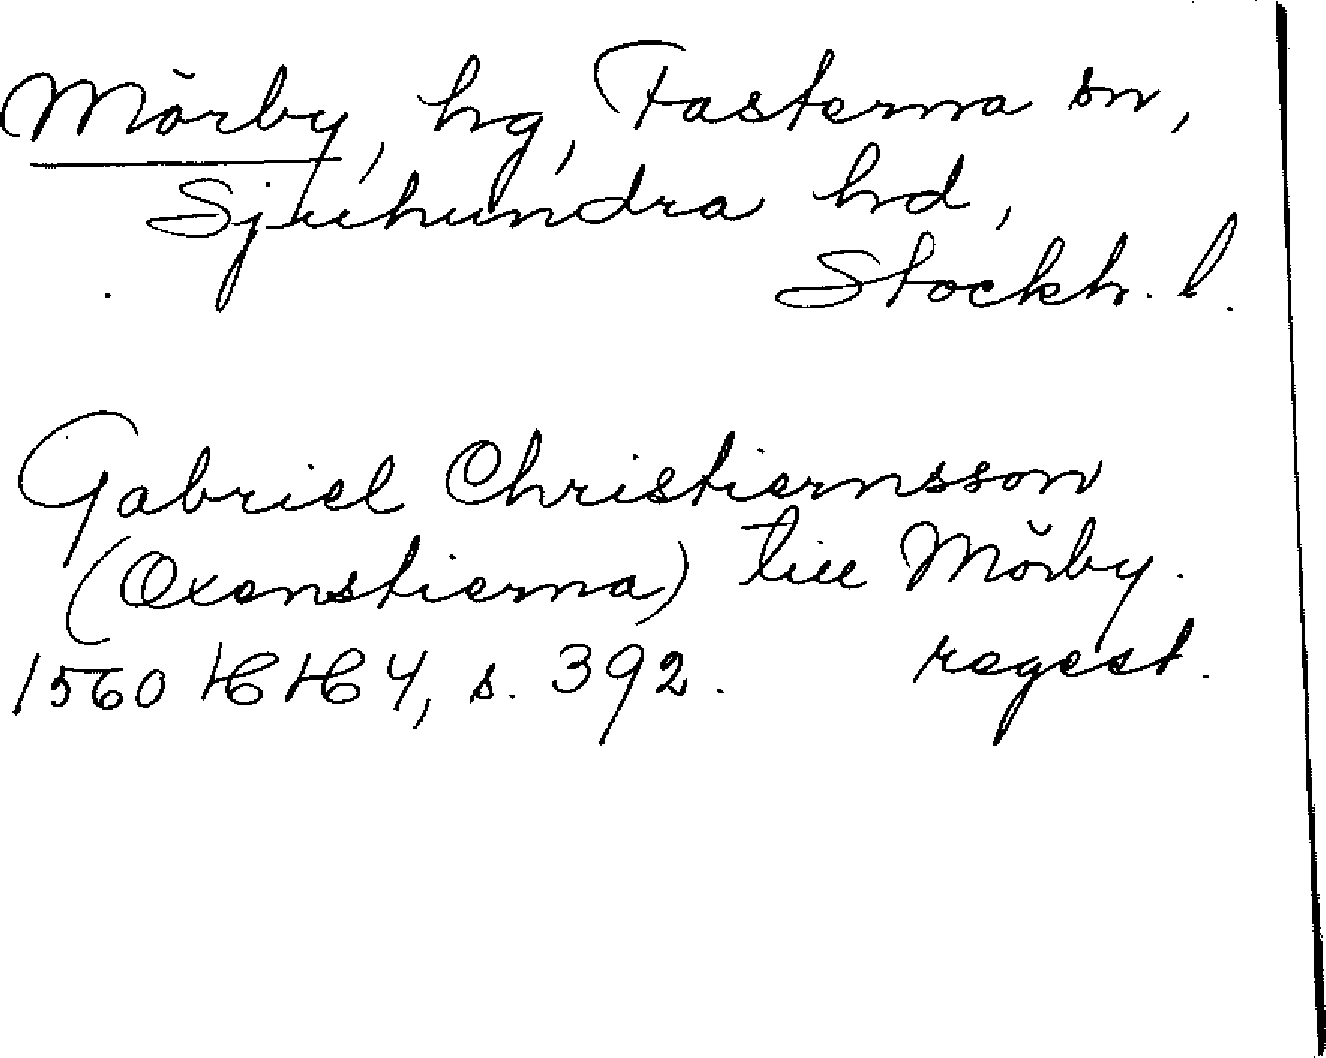 Mörby, hg, Fasterna sn,
Sjuhundra hd,
Stockh. l.
Gabriel Christiernsson
(Oxenstierna) till Mörby.
1560 HH 4, s. 392. regest.